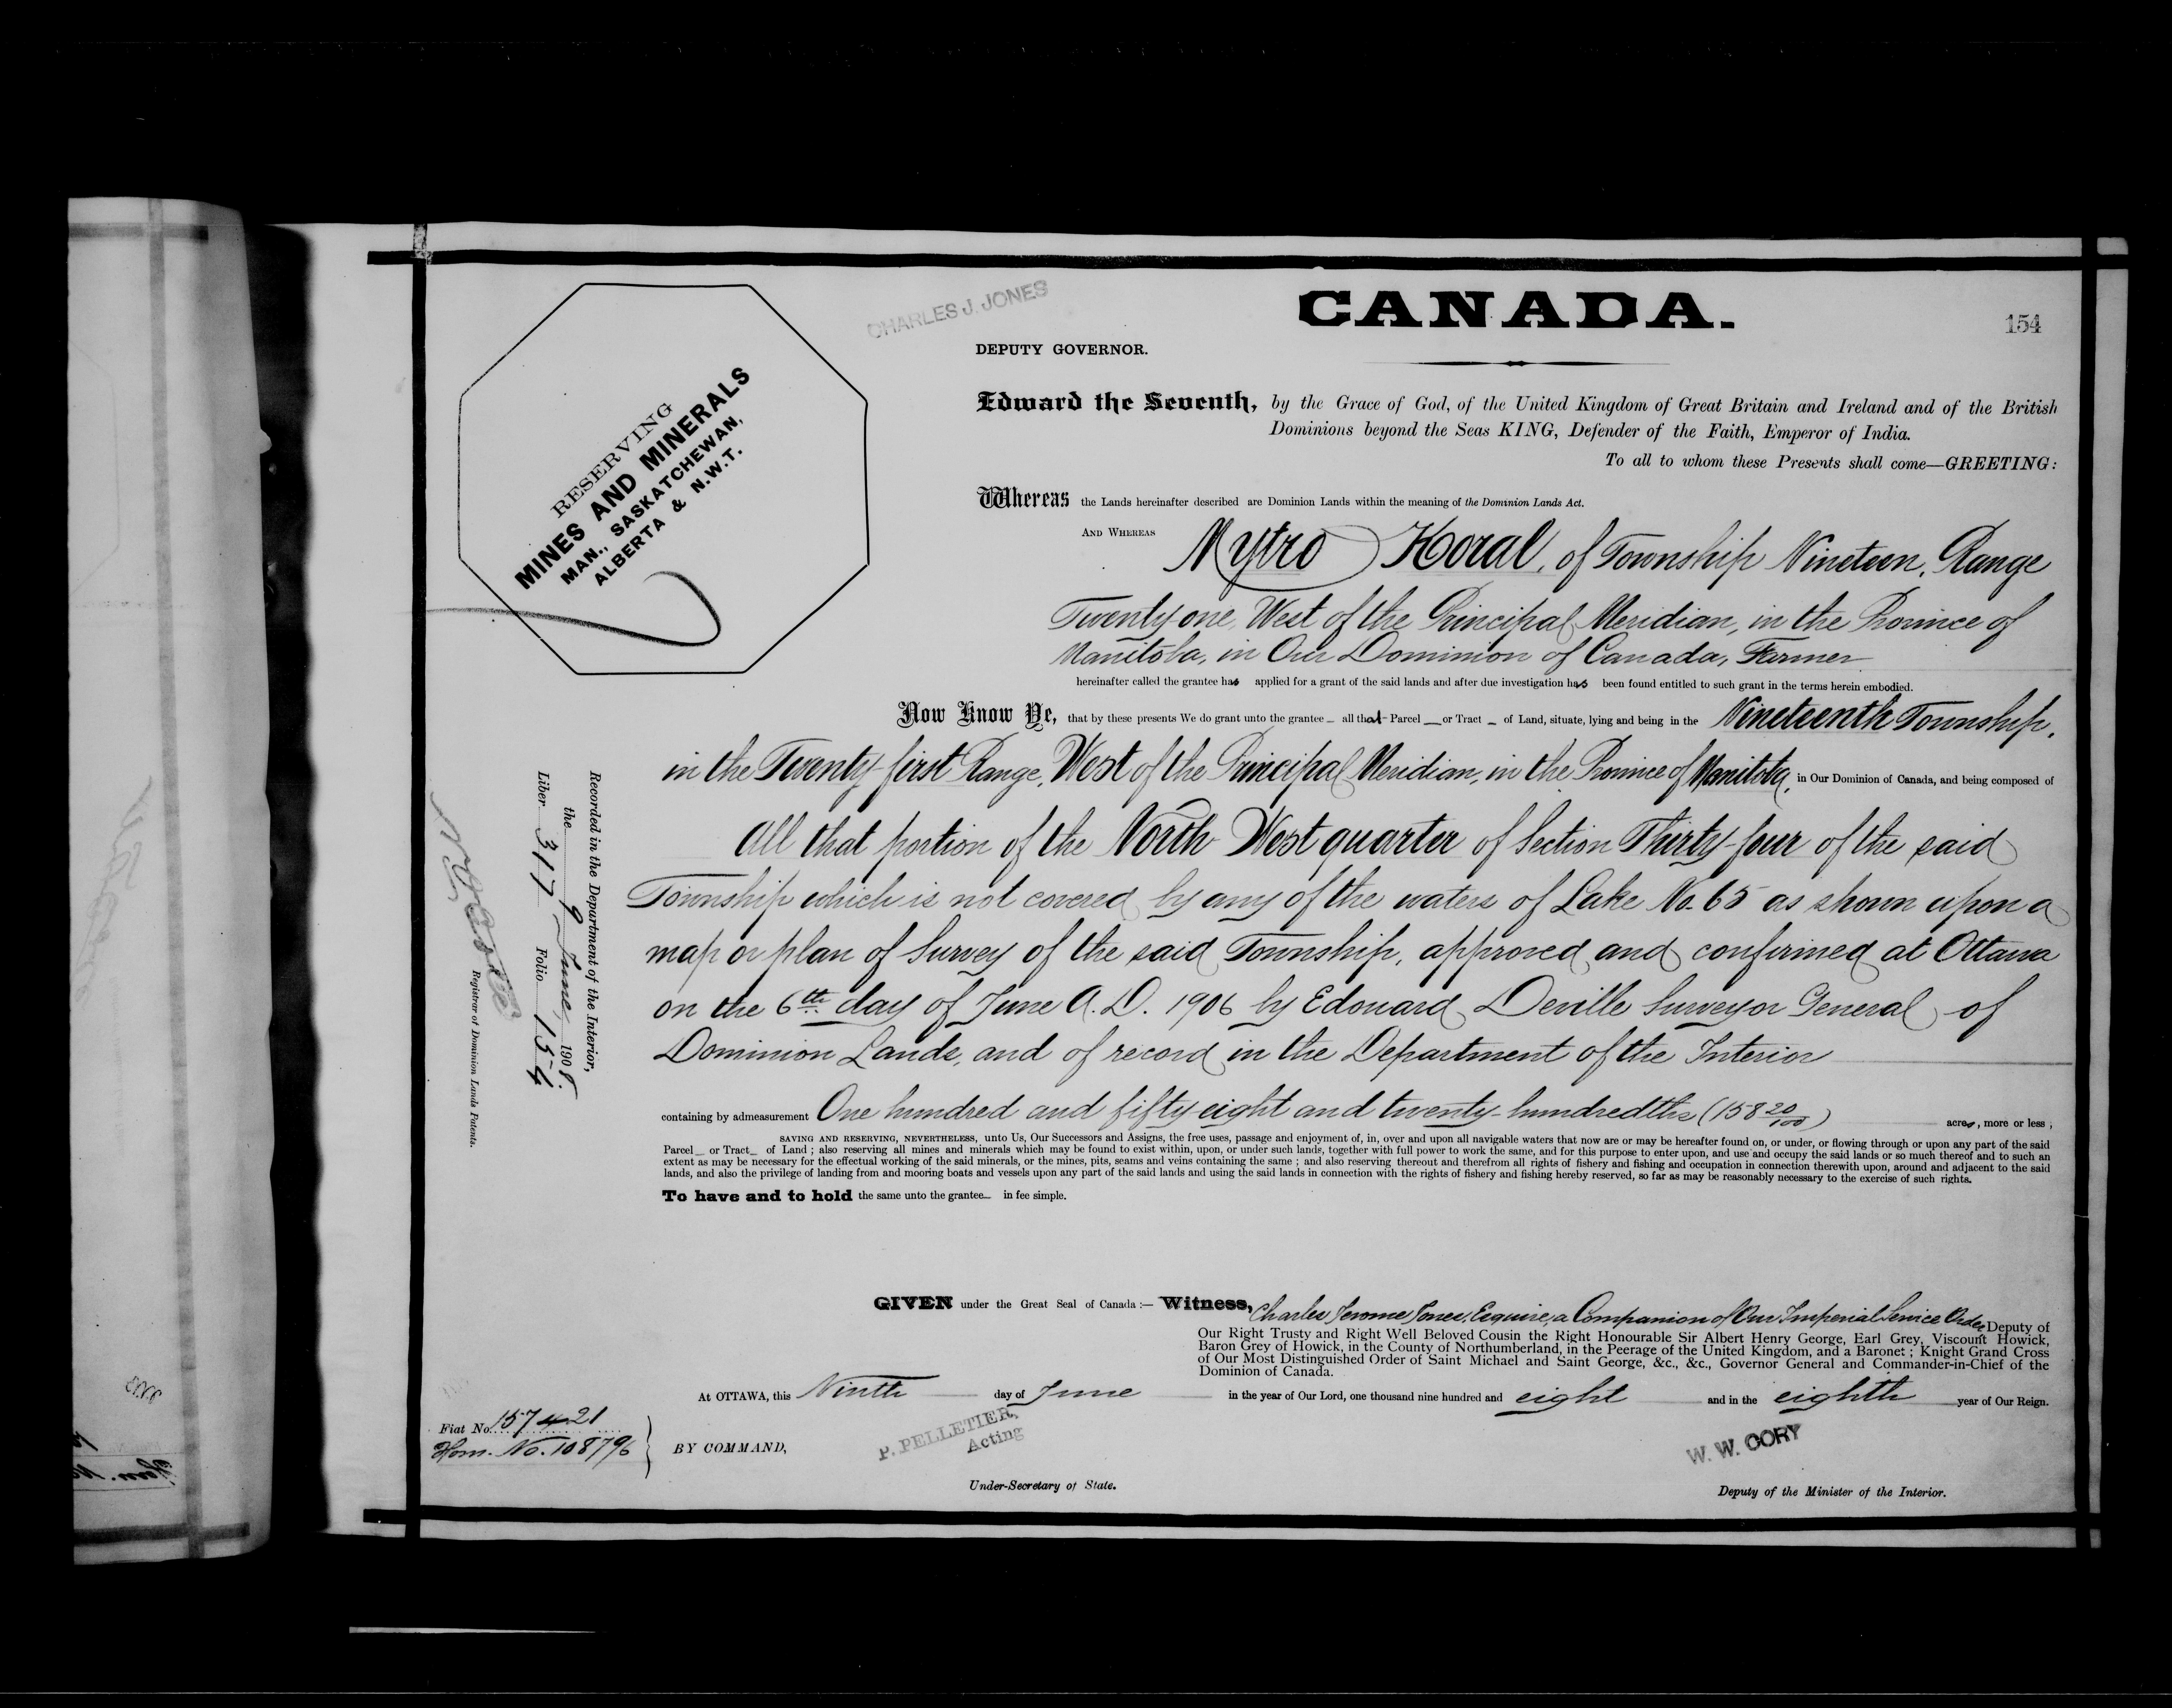 CHARLES J. JONES
CANADA.
154
DEPUTY GOVERNOR.
RESERVING
MINES AND MINERALS
MAN., SASKATCHEWAN,
ALBERTA & N.W.T.
Edward the Seventh, by the Grace of God, of the United Kingdom of Great Britain and Ireland and of the British
Dominions beyond the Seas KING, Defender of the Faith, Emperor of India.
To all to whom these Presents shall come—GREETING:
Whereas the Lands hereinafter described are Dominion Lands within the meaning of the Dominion Lands Act.
AND WHEREAS Mytro Horal, of Township Nineteen, Range
Twenty-one, West of the Principal Meridian, in the Province of
Manitoba, in Our Dominion of Canada, Farmer
hereinafter called the grantee has applied for a grant of the said lands and after due investigation has been found entitled to such grant in the terms herein embodied.
Now Know Ye, that by these presents We do grant unto the grantee all that Parcel or Tract of Land, situate, lying and being in the Nineteenth Township,
in the Twenty-first Range, West of the Principal Meridian, in the Province of Manitoba, in Our Dominion of Canada, and being composed of
All that portion of the North West quarter of Section Thirty-four of the said
Township which is not covered by any of the waters of Lake No. 65 as shown upon a
map or plan of Survey of the said Township, approved and confirmed at Ottawa
on the 6th day of June A.D. 1906 by Edouard Deville Surveyor General of
Dominion Lands, and of record in the Department of the Interior
containing by admeasurement One hundred and fifty eight and twenty-hundredths (158 20/100) acres, more or less ;
SAVING AND RESERVING, NEVERTHELESS, unto Us, Our Successors and Assigns, the free uses, passage and enjoyment of, in, over and upon all navigable waters that now are or may be hereafter found on, or under, or flowing through or upon any part of the said
Parcel or Tract of Land ; also reserving all mines and minerals which may be found to exist within, upon, or under such lands, together with full power to work the same, and for this purpose to enter upon, and use and occupy the said lands or so much thereof and to such an
extent as may be necessary for the effectual working of the said minerals, or the mines, pits, seams and veins containing the same ; and also reserving thereout and therefrom all rights of fishery and fishing and occupation in connection therewith upon, around and adjacent to the said
lands, and also the privilege of landing from and mooring boats and vessels upon any part of the said lands and using the said lands in connection with the rights of fishery and fishing hereby reserved, so far as may be reasonably necessary to the exercise of such rights.
To have and to hold the same unto the grantee in fee simple.
Recorded in the Department of the Interior,
the 9 June, 1908.
Liber 317 Folio 154
Registrar of Dominion Lands Patents.
GIVEN under the Great Seal of Canada :— Witness, Charles Jerome Jones, Esquire, a Companion of Our Imperial Service Order Deputy of
Our Right Trusty and Right Well Beloved Cousin the Right Honourable Sir Albert Henry George, Earl Grey, Viscount Howick,
Baron Grey of Howick, in the County of Northumberland, in the Peerage of the United Kingdom, and a Baronet ; Knight Grand Cross
of Our Most Distinguished Order of Saint Michael and Saint George, &c., &c., Governor General and Commander-in-Chief of the
Dominion of Canada.
At OTTAWA, this Ninth day of June in the year of Our Lord, one thousand nine hundred and eight and in the eighth year of Our Reign.
Fiat No. 157421
Hom. No. 108796
BY COMMAND,
P. PELLETIER,
Acting
Under-Secretary of State.
W. W. CORY
Deputy of the Minister of the Interior.